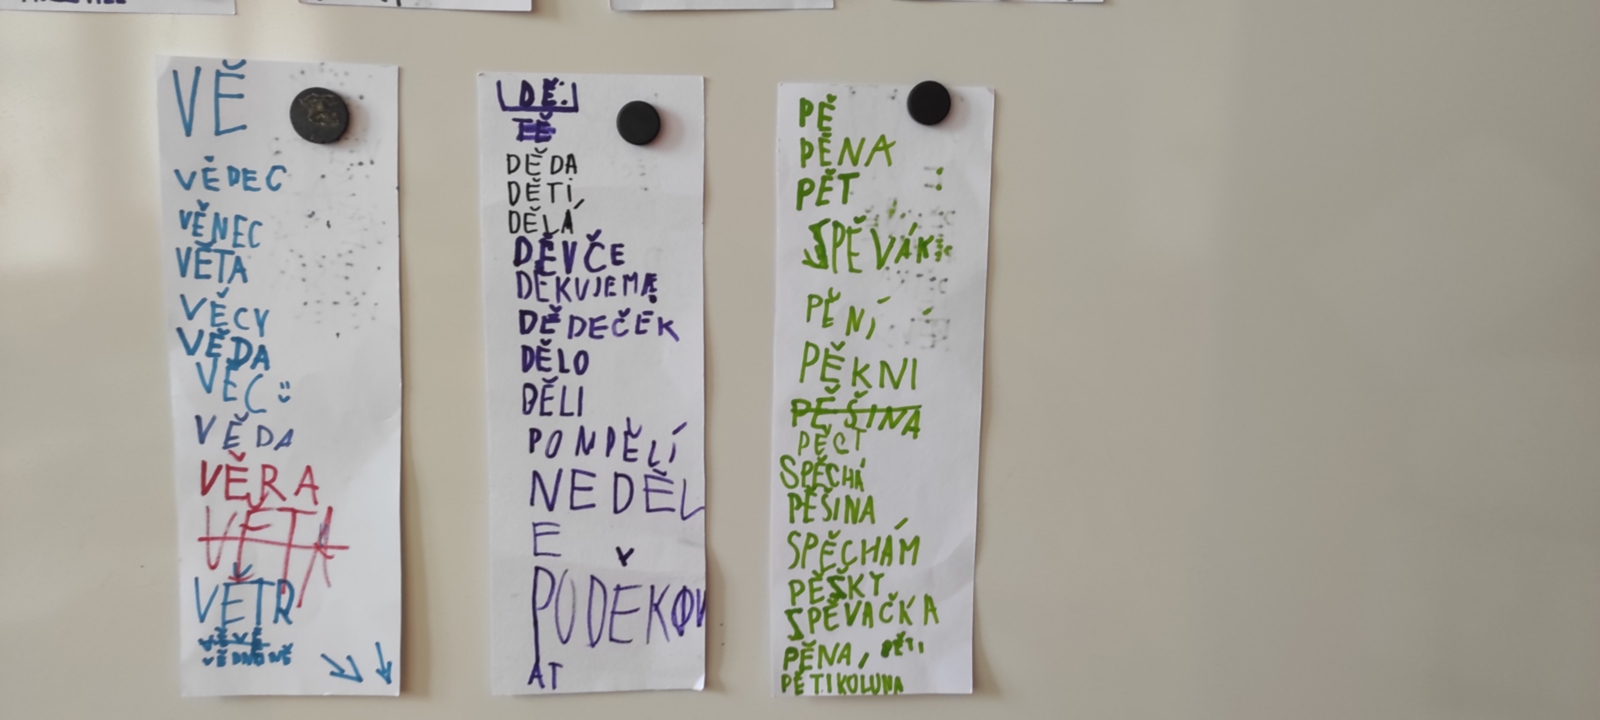 VĚ
VĚDEC
VĚNEC
VĚTA
VĚCY
VĚDA
VĚC
VĚDA
VĚRA
VĚTA
VĚTR
DĚ.
TĚ
DĚDA
DĚTI
DĚLÁ
DĚVČE
DĚKUJEME
DĚDEČEK
DĚLO
DĚLI
PONDĚLÍ
NEDĚL
E
PODĚKOV
AT
PĚ
PĚNA
PĚT
SPĚVÁK
PĚNÍ
PĚKNI
PĚŠINA
PĚCT
SPĚCHÁ
PĚŠINA
SPĚCHÁM
PĚŠKY
SPĚVAČKA
PĚNA, PĚTI
PĚTIKOLUNA